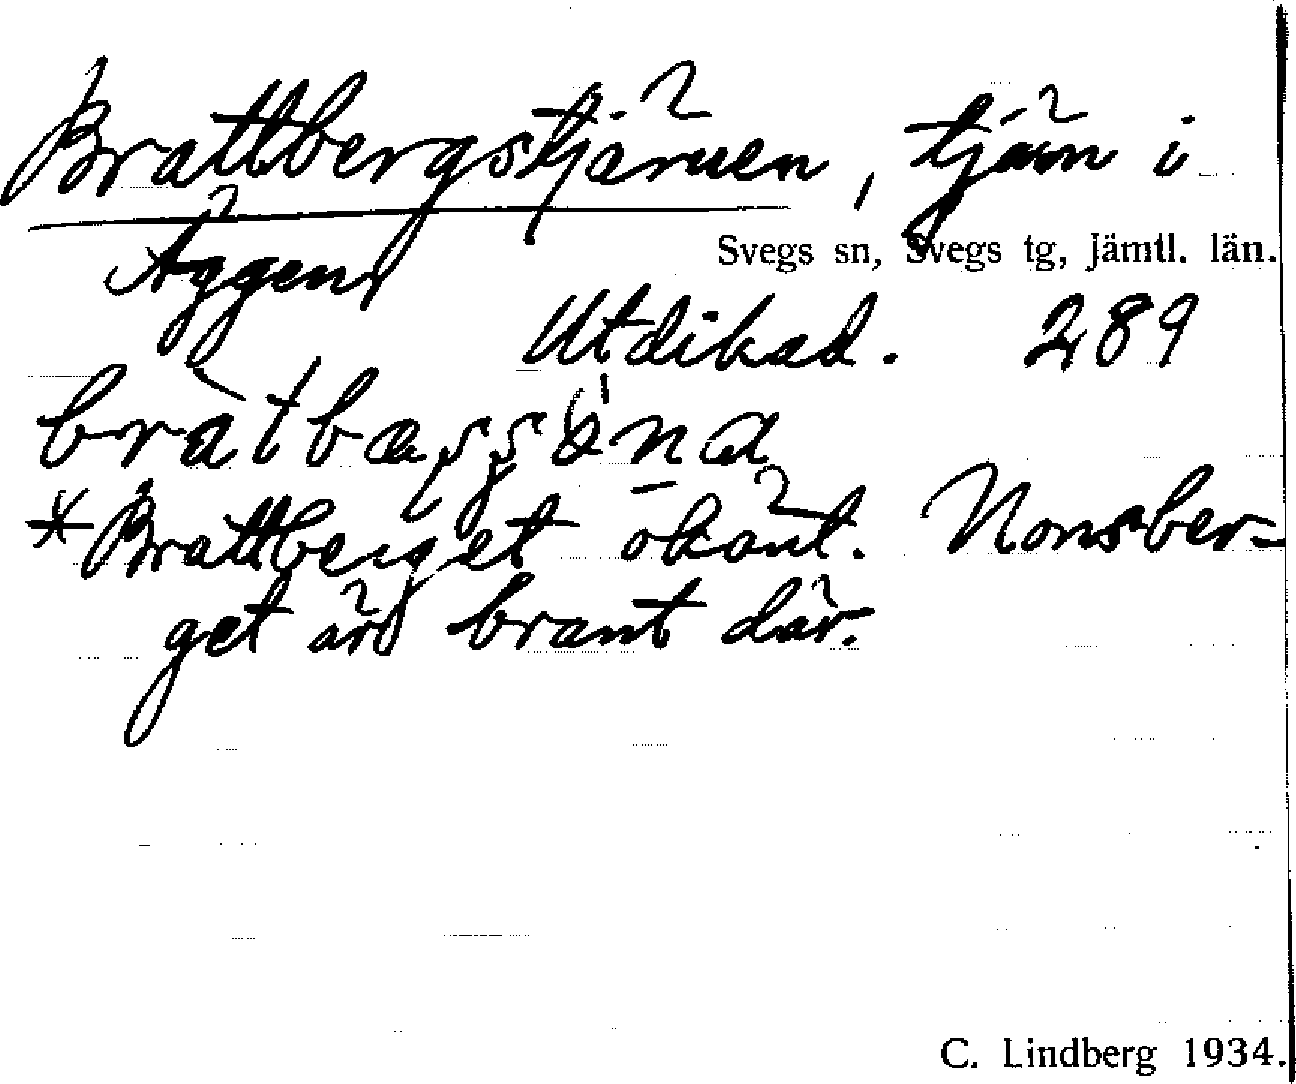 Brattbergstjärnen, tjärn i
Äggen,
Svegs sn, Svegs tg, Jämtl. län.
Utdikad. 289
*Brattberget okänt. Nonsber-
get är brant där.
C. Lindberg 1934.